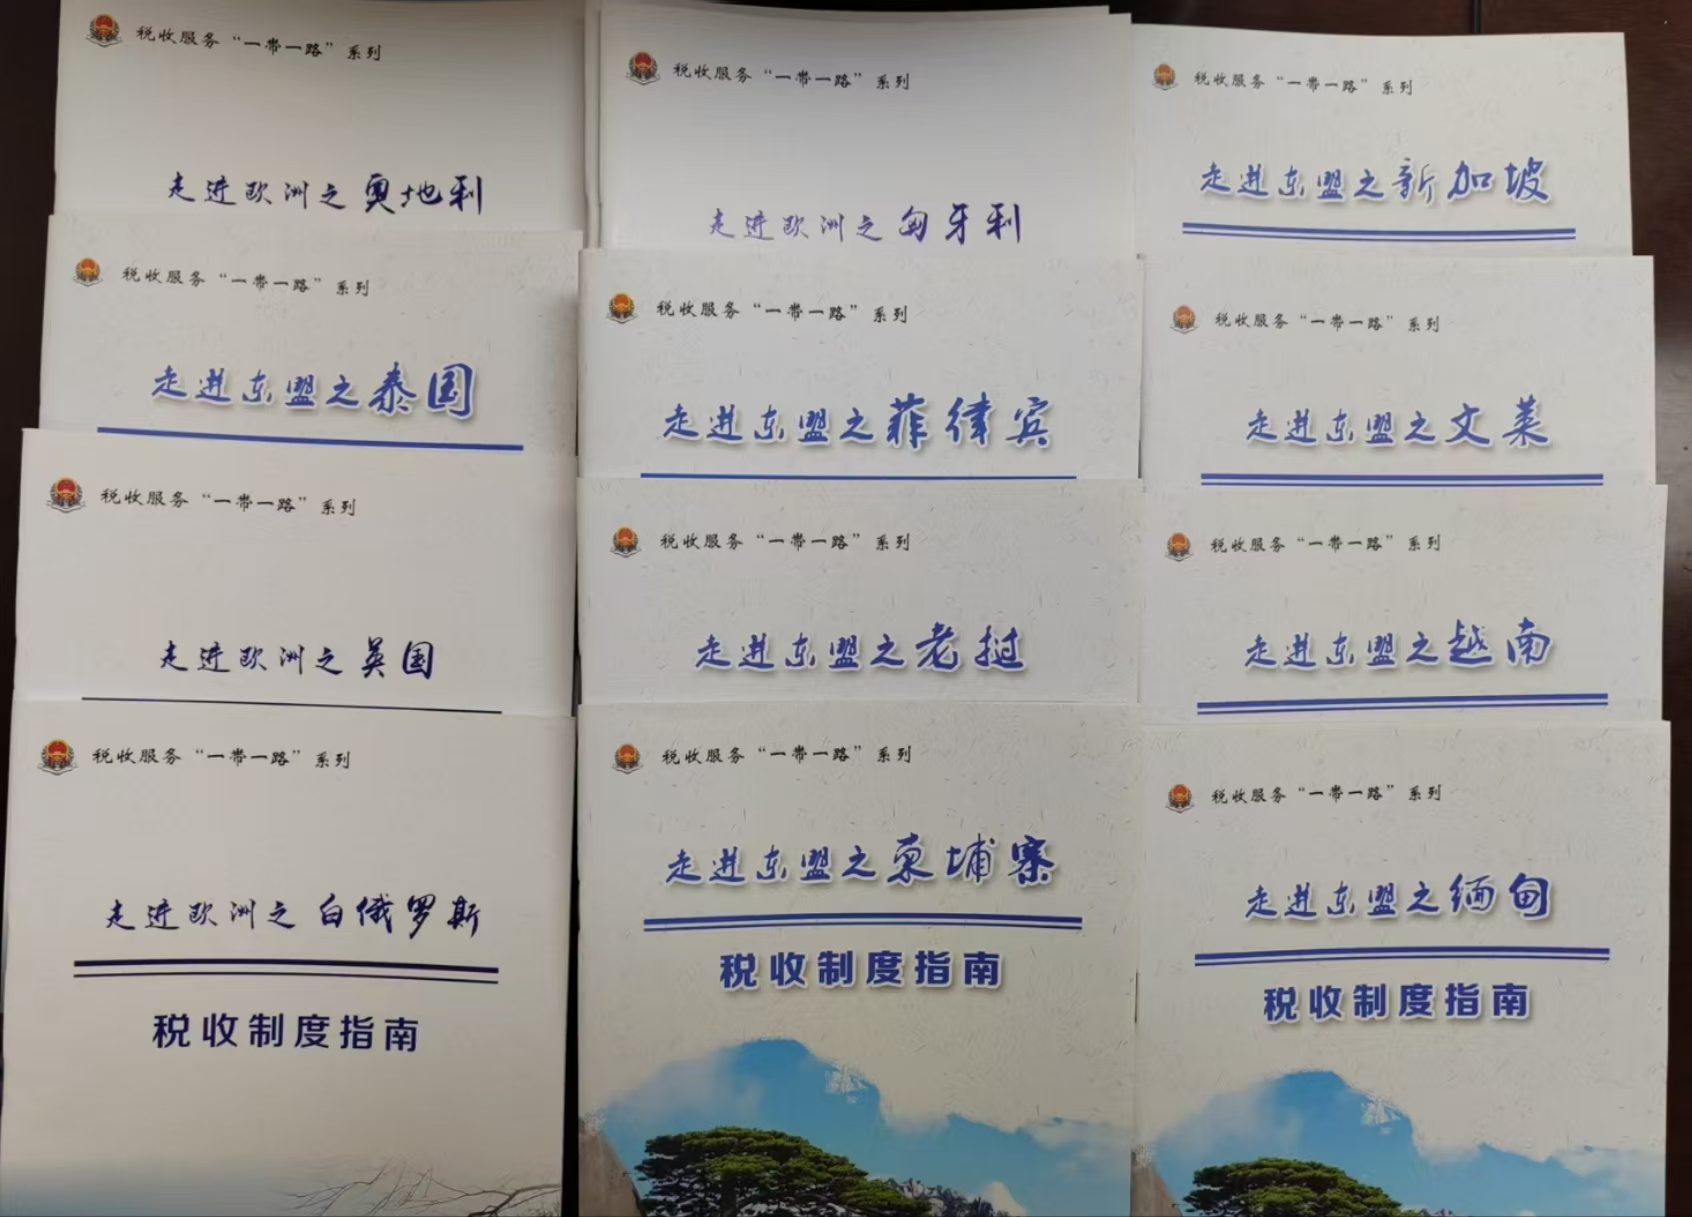 税收服务“一带一路”系列
走进欧洲之奥地利
税收服务“一带一路”系列
走进东盟之泰国
税收服务“一带一路”系列
走进欧洲之英国
税收服务“一带一路”系列
走进欧洲之白俄罗斯
税收制度指南
税收服务“一带一路”系列
走进欧洲之匈牙利
税收服务“一带一路”系列
走进东盟之菲律宾
税收服务“一带一路”系列
走进东盟之老挝
税收服务“一带一路”系列
走进东盟之柬埔寨
税收制度指南
税收服务“一带一路”系列
走进东盟之新加坡
税收服务“一带一路”系列
走进东盟之文莱
税收服务“一带一路”系列
走进东盟之越南
税收服务“一带一路”系列
走进东盟之缅甸
税收制度指南